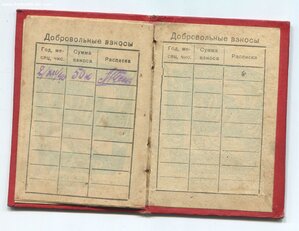 Добровольные взносы
Год, ме-
сяц, чис.
Сумма
взноса
Расписка
50к
Добровольные взносы
Год, ме-
сяц, чис.
Сумма
взноса
Расписка